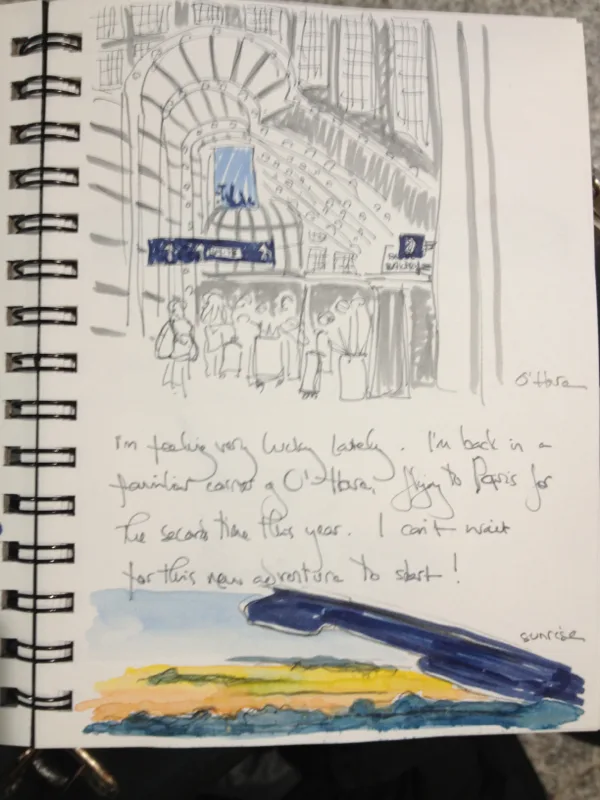 O'Hare
I'm feeling very lucky lately. I'm back in a
familiar corner of O'Hare, flying to Paris for
the second time this year. I can't wait
for this new adventure to start!
sunrise